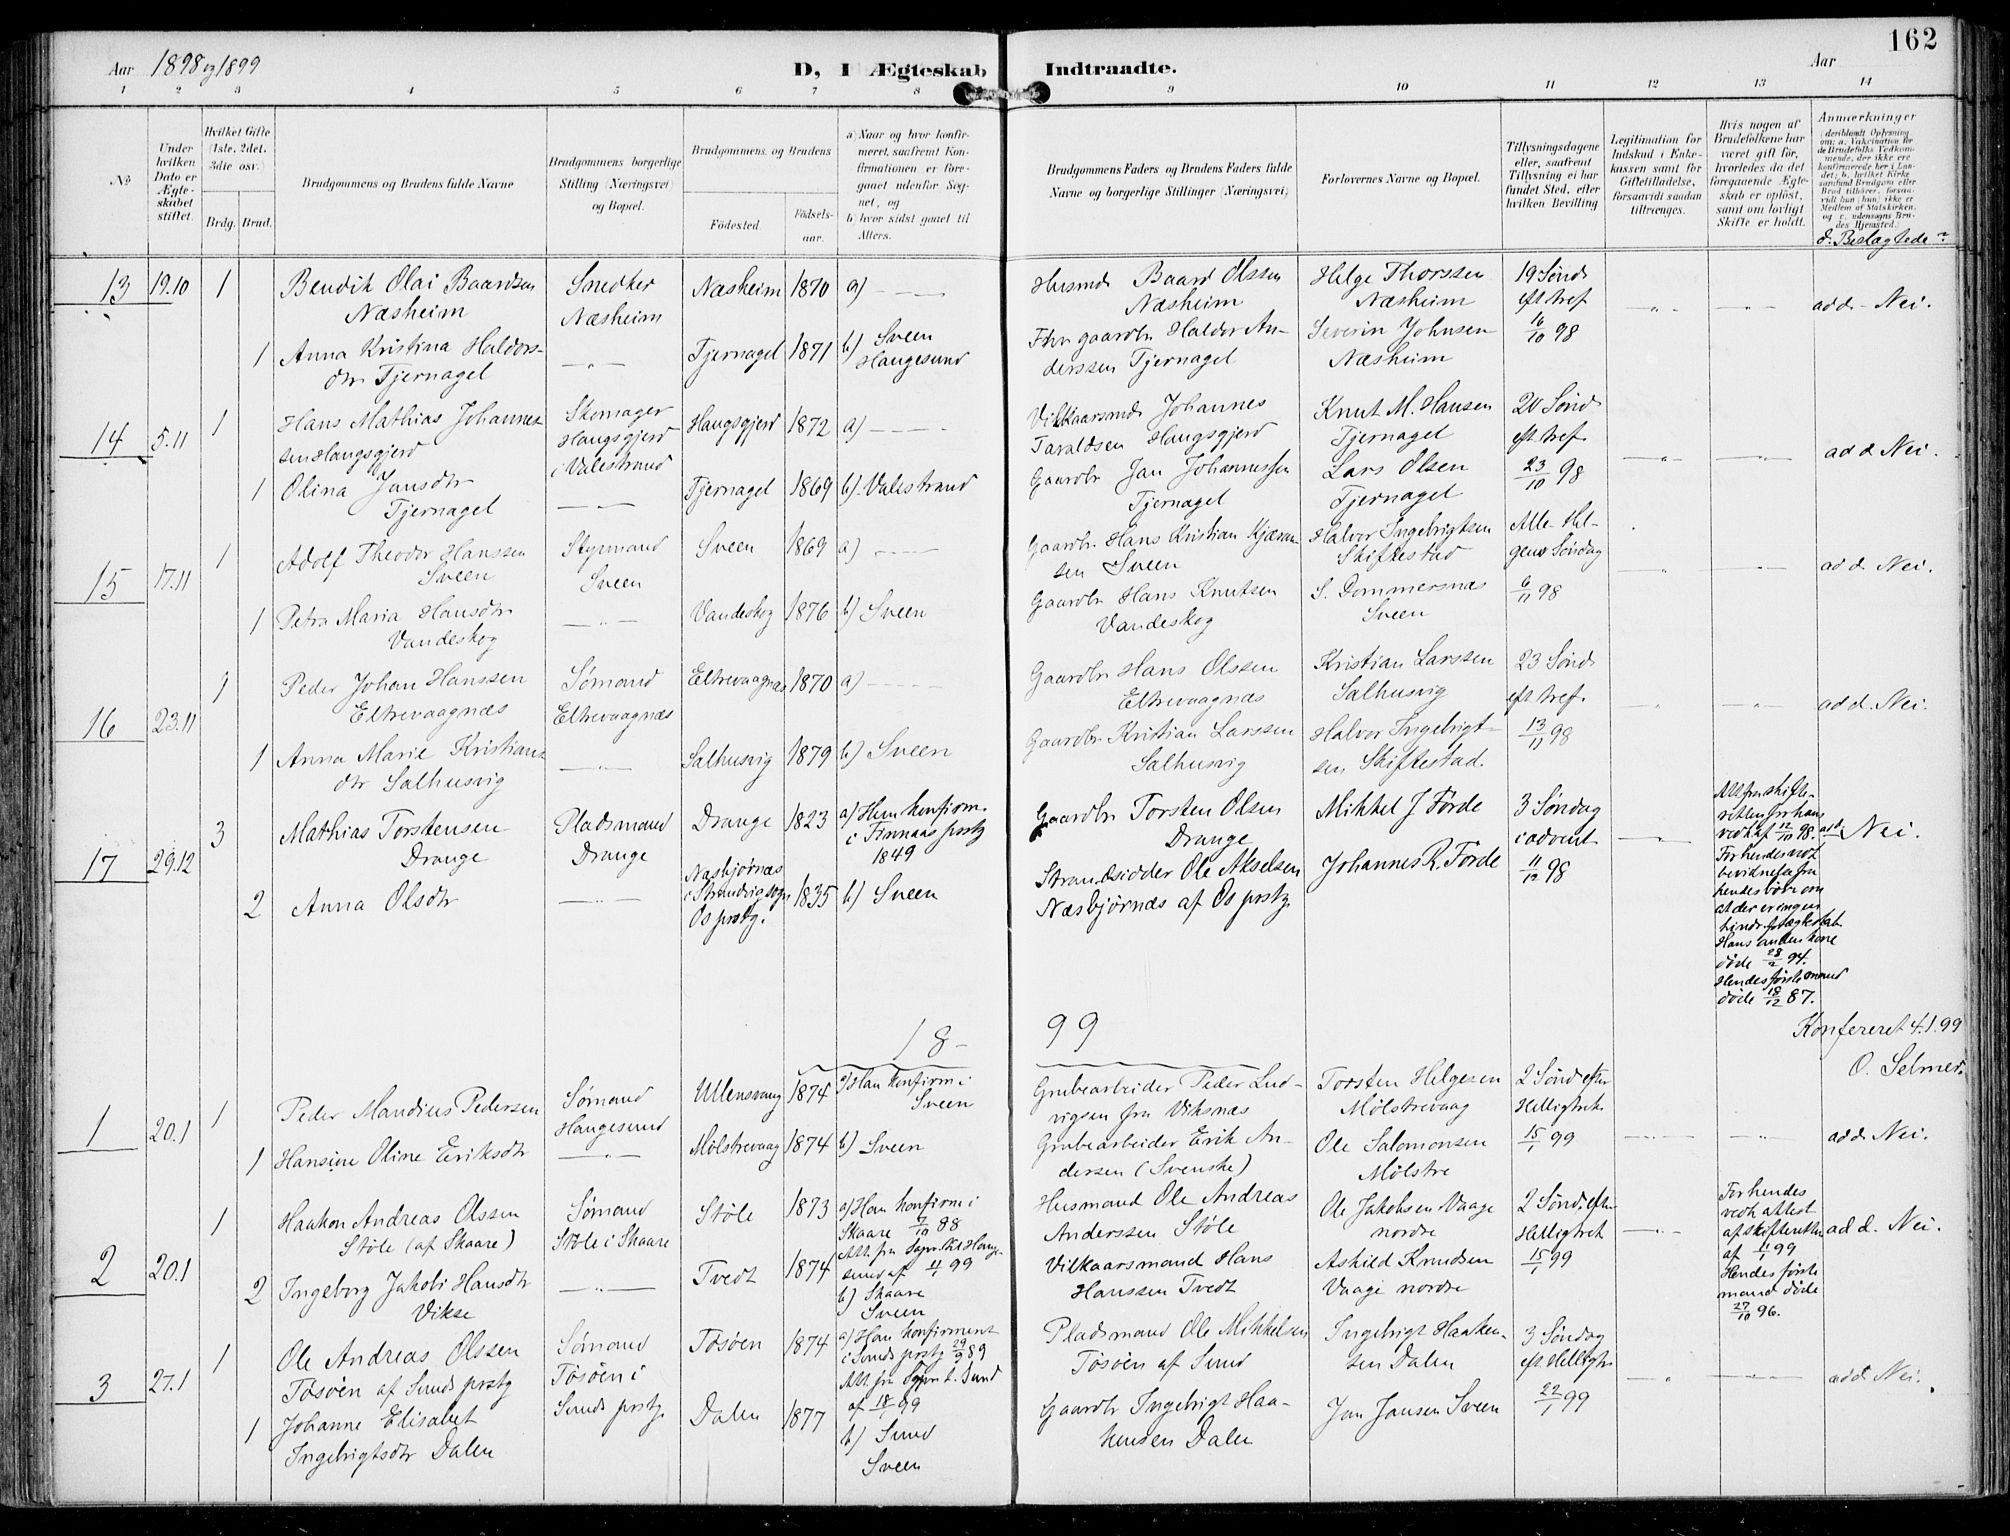 162
Aar 1898 og 1899
D, I Ægteskab Indtraadte.
Aar
1 2 3 4 5 6 7 8 9 10 11 12 13 14
№
Under hvilken Dato er Ægteskabet stiftet.
Hvilket Gifte (1ste, 2det, 3die osv.)
Brdg. Brud.
Brudgommens og Brudens fulde Navne
Brudgommens borgerlige Stilling (Næringsvei) og Bopæl.
Brudgommens og Brudens
Födested. Födselsaar.
a) Naar og hvor konfirmeret, saafremt Konfirmationen er foregaaet udenfor Sognet, og
b) hvor sidst gaaet til Alters.
Brudgommens Faders og Brudens Faders fulde Navne og borgerlige Stillinger (Næringsvei)
Forlovernes Navne og Bopæl.
Tillysningsdagene eller, saafremt Tillysning ei har fundet Sted, efter hvilken Bevilling
Legitimation for Indskud i Enkekassen samt for Giftetilladelse, forsaavidt saadan tiltrænges.
Hvis nogen af Brudefolkene har været gift för, hvorledes da det foregaaende Ægteskab er oplöst, samt om lovligt Skifte er holdt.
Anmærkninger (deriblandt Oplysning om: a. Vakcination for de Brudefolks Vedkommende, der ikke ere konfirmerede her i Landet; b. hvilket Kirkesamfund Brudgom eller Brud tilhörer, forsaavidt han (hun) ikke er Medlem af Statskirken, og c. udensogns Brudes Hjemsted.)
d. Beslægtede?
13 19.10 1 Bendik Olai Baardsen Næsheim
Snedker Næsheim
Næsheim 1870 a) – – –
Husmd Baard Olssen Næsheim
Helge Thorssen Næsheim
19 Sønd. eft. tref. 16/10 98
ad d. Nei.
1 Anna Kristina Haldorsdtr Tjernagel
Tjernagel 1871 b) Sveen Haugesund
Fhv gaardbr Haldor Anderssen Tjernagel
Severin Johnsen Næsheim
14 5.11 1 Hans Mathias Johannessen Haugsgjerd
Skomager Haugsgjerd i Valestrand
Haugsgjerd 1872 a) – – –
Vilkaarsmd Johannes Taraldsen Haugsgjerd
Knut M. Hansen Tjernagel
20 Sønd. eft. tref. 23/10 98
ad d. Nei.
1 Olina Jansdtr Tjernagel
Tjernagel 1869 b) Valestrand
Gaardbr Jan Johannessen Tjernagel
Lars Olsen Tjernagel
15 17.11 1 Adolf Theodor Hanssen Sveen
Styrmand Sveen
Sveen 1869 a) – – –
Gaardbr Hans Kristian Kjæransen Sveen
Halvor Ingebrigtsen Skiftestad
Alle Helgens Søndag 6/11 98
ad d. Nei.
1 Petra Maria Hansdtr Vandeskog
Vandeskog 1876 b) Sveen
Gaardbr Hans Knutsen Vandeskog
S. Dommersnæs Sveen
16 23.11 1 Peder Johan Hanssen Eltrevaagnæs
Sømand Eltrevaagnæs
Eltrevaagnæs 1870 a) – – –
Gaardbr Hans Olssen Eltrevaagnæs
Kristian Larssen Salhusvig
23 Sønd. eft. tref. 13/11 98
ad d. Nei.
1 Anna Marie Kristiansdtr Salhusvig
Salhusvig 1879 b) Sveen
Gaardbr Kristian Larssen Salhusvig
Halvor Ingebrigtsen Skiftestad.
17 29.12 3 Mathias Torstensen Drange
Pladsmand Drange
Drange 1823 a) Han konfirm. i Finnaas prstg 1849
Gaardbr Torsten Olsen Drange
Mikkel J Førde
3 Søndag i advent 11/12 98
Att. fra skifteretten for hans vedk. af 12/10 98. For hendes vedk. bevidnes fra hendes bror om at der er ingen hindr. f. ægteskab. Hans anden kone døde 28/2 94. Hendes første mand døde 18/12 87.
ad d. Nei.
2 Anna Olsdtr
Næsbjørnæs i Strandvig sogn Os prstg. 1835 b) Sveen
Strandsidder Ole Akselsen Næsbjørnæs af Os prstg.
Johannes R. Førde
Konfereret 4.1.99
O. Selmer.
18– 99
1 20.1 1 Peder Mandius Pedersen
Sømand Haugesund
Ullensvang 1874 a) Han konfirm i Sveen
Grubearbeider Peder Ludvigsen fra Viksnæs
Torsten Helgesen Mølstrevaag
2 Sønd. efter Helligtrek. 15/1 99
ad d. Nei.
1 Hansine Oline Eriksdtr
Mølstrevaag 1874 b) Sveen
Grubearbeider Erik Andersen (Svenske)
Ole Salomonsen Mølstre
2 20.1 1 Haakon Andreas Olssen Støle (af Skaare)
Sømand Støle i Skaare
Støle 1873 a) Han konfirm i Skaare 7/10 88 Att. fra Sogнepr. til Haugesund af 11/1 99
Husmand Ole Andreas Anderssen Støle
Ole Jakobsen Vaage nordre
2 Sønd. efter Helligtrek 15/1 99
For hendes vedk. attest af skifteretten af 11/1 99 Hendes første mand døde 27/10 96.
ad d. Nei.
2 Ingeborg Jakobi Hansdtr Vikse
Tvedt 1874 b) Skaare Sveen
Vilkaarsmand Hans Hanssen Tvedt
Askild Knudsen Vaage nordre
3 27.1 1 Ole Andreas Olssen Tøsøen af Sunds prstg
Sømand Tøsøen i Sunds prstg.
Tøsøen 1874 a) Han konfirmert i Sunds prstg 29/9 89 Att. fra Sogнpr t. Sund af 18/1 99
Pladsmand Ole Mikkelsen Tøsøen af Sund
Ingebrigt Haakensen Dalen
3 Søndag eft. Helligtr. 22/1 99
ad d. Nei.
1 Johanne Elisabet Ingebrigtsdtr Dalen
Dalen 1877 b) Sund Sveen
Gaardbr Ingebrigt Haakensen Dalen
Jan Jansen Sveen